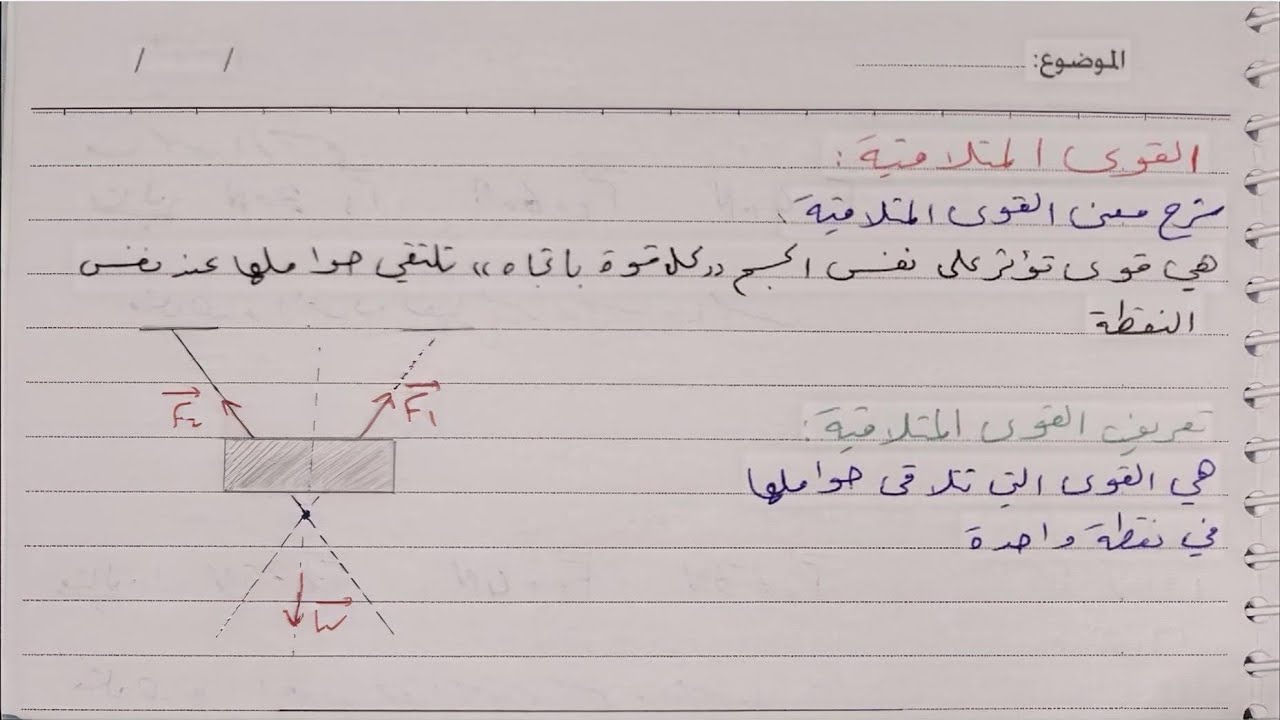 الموضوع:
/ /
القوى المتلاقية:
شرح معنى القوى المتلاقية:
هي قوى تؤثر على نفس الجسم ((كل قوة باتجاه)) تلتقي حواملها عند نفس
النقطة
F₂ F₁
تعريف القوى المتلاقية:
هي القوى التي تلاقى حواملها
في نقطة واحدة
W